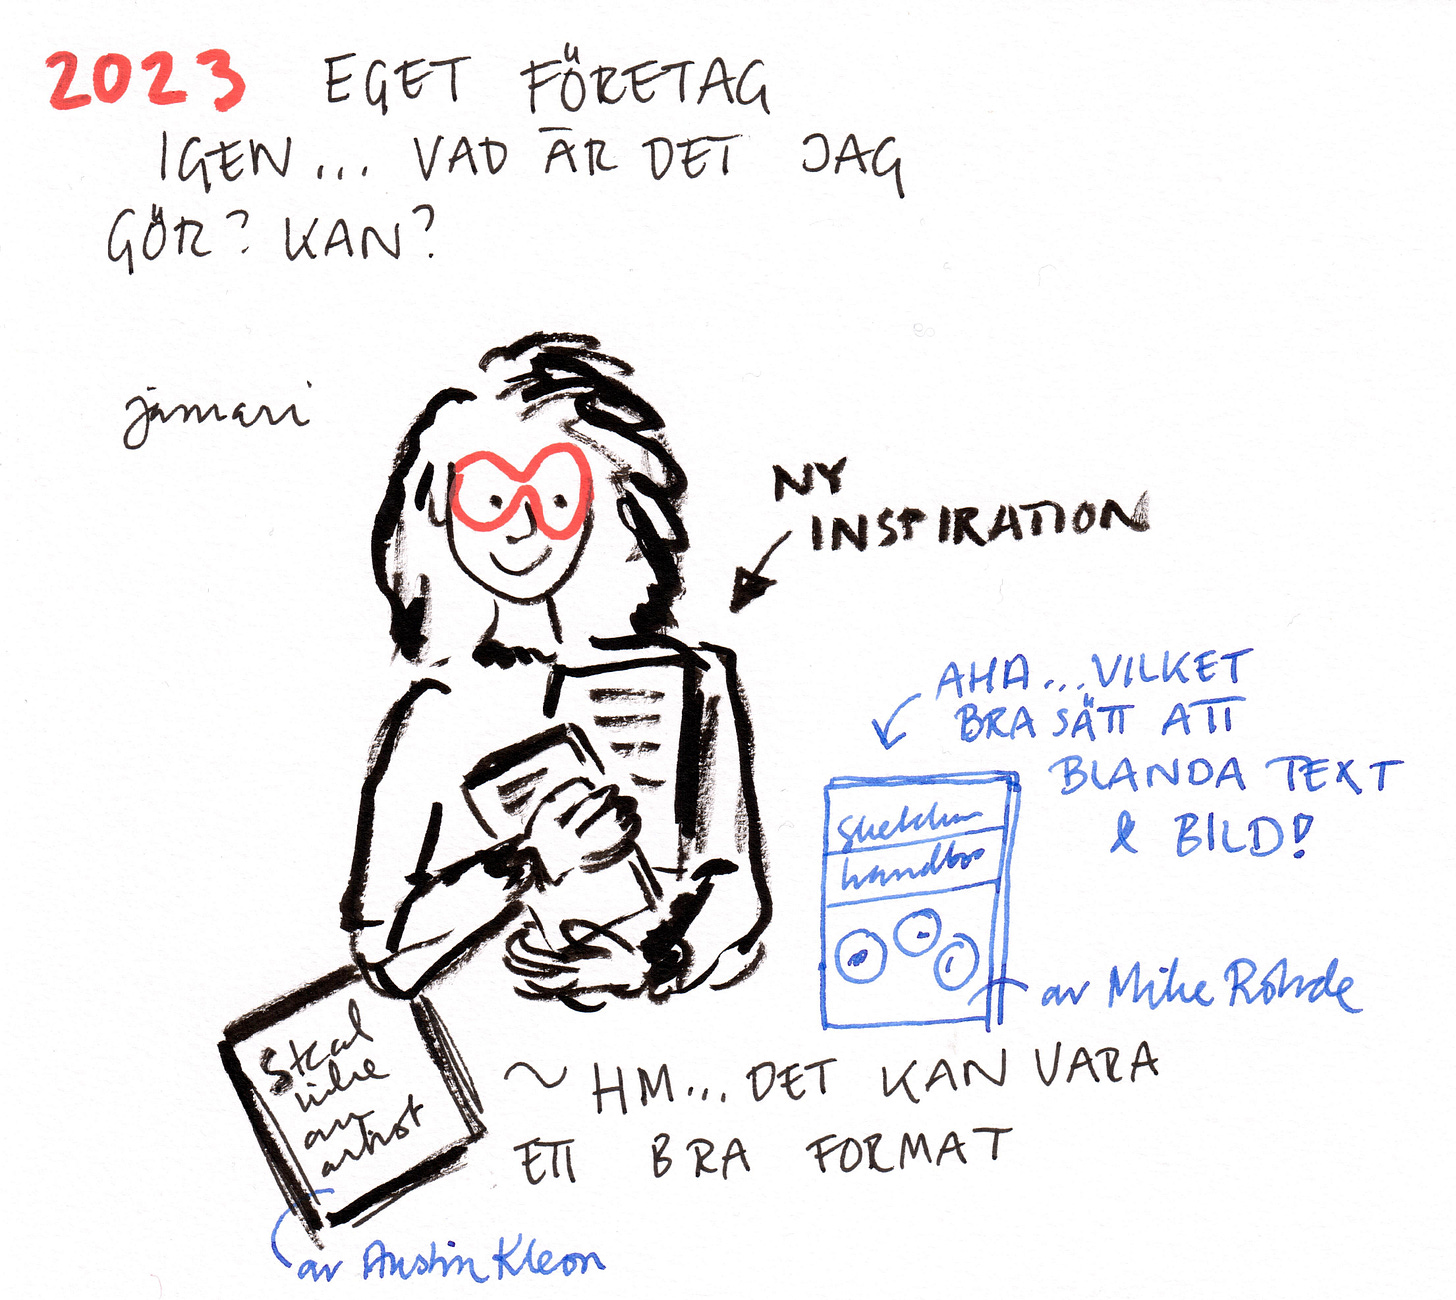 2023 EGET FÖRETAG
IGEN... VAD ÄR DET JAG
GÖR? KAN?
januari
NY
INSPIRATION
AHA...VILKET
BRA SÄTT ATT
BLANDA TEXT
& BILD!
av Mike Rohde
Steal
like
an
artist
~ HM... DET KAN VARA
ETT BRA FORMAT
av Austin Kleon